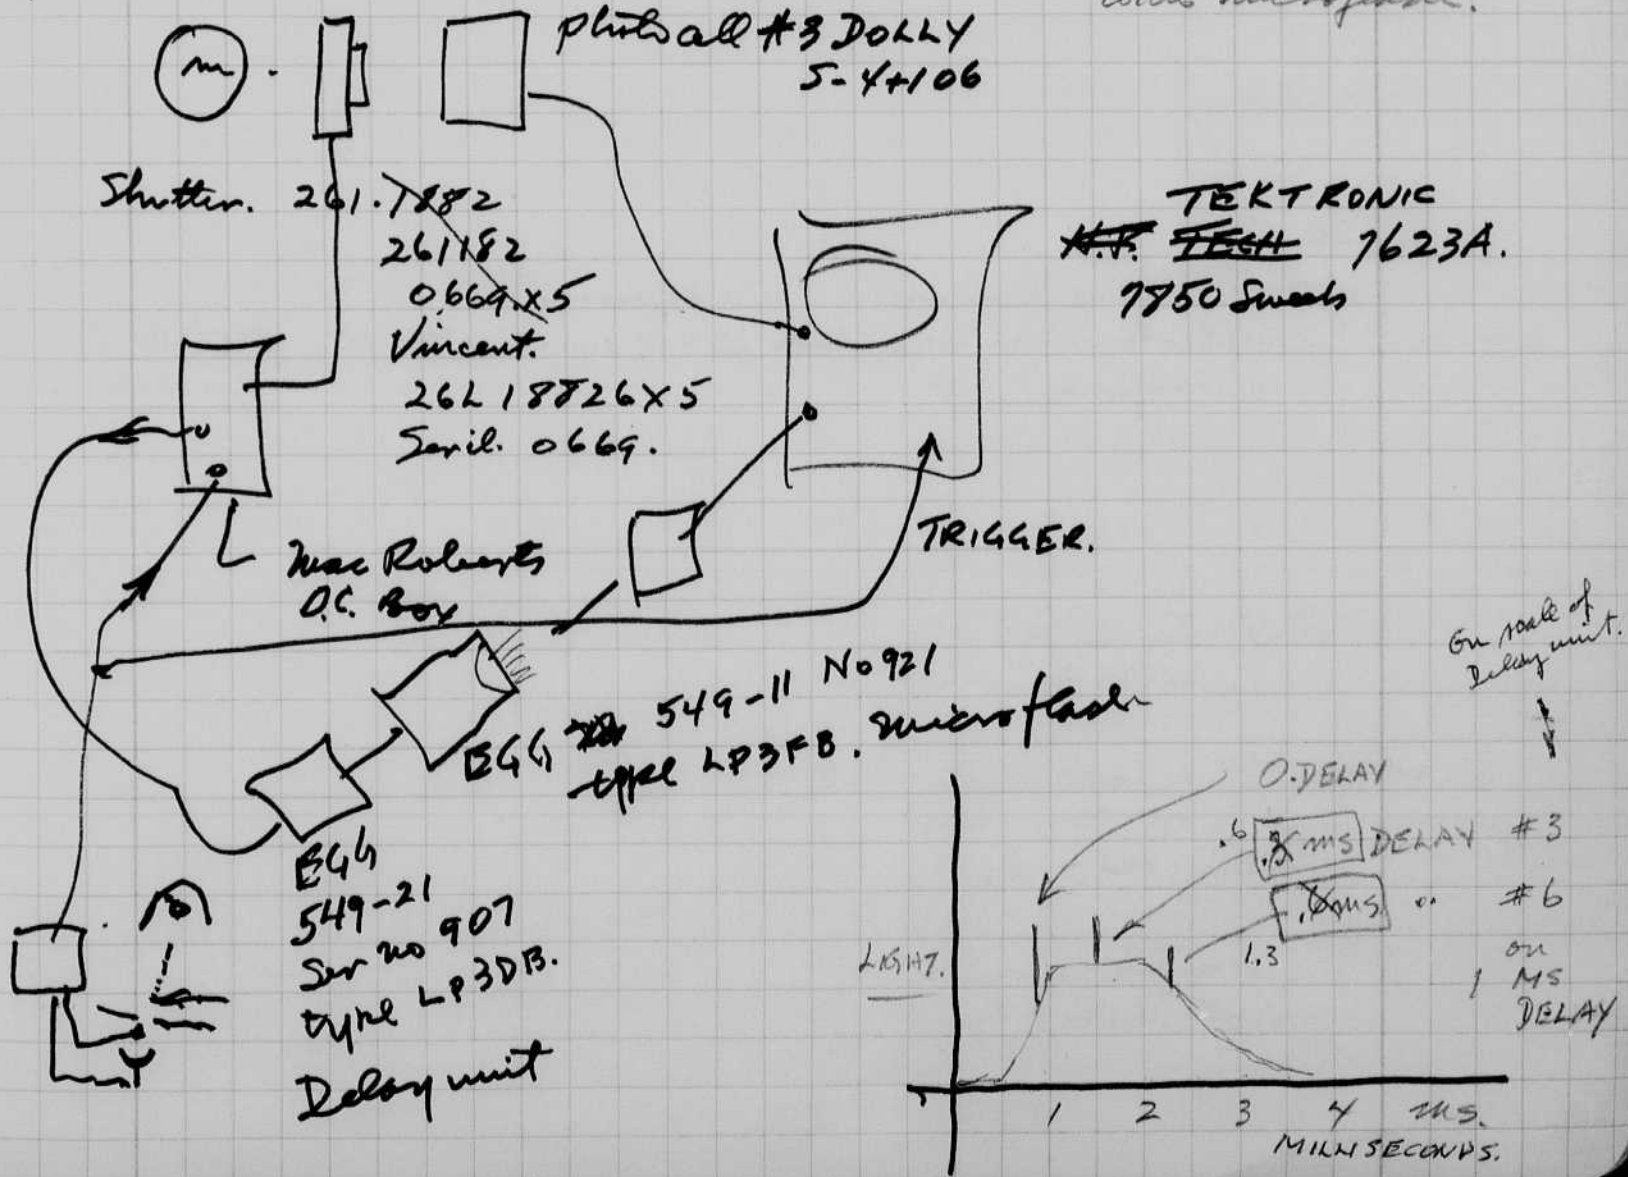 with microflash.
photo cell #3 DOLLY
5-4+106
Shutter. 261.1882
261182
0669.x5
Vincent.
26L 18826X5
Seril. 0669.
TEKTRONIC
H.P. TECH 7623A.
7850 Sweeb
Mac Roberts
O.C. Box
TRIGGER.
EGG 549-11 No 921
type LP3FB. microflash
EGG
549-21
Ser no 907
type LP3DB.
Delay unit
On scale of
Delay unit.
0.DELAY
.6 .3 ms DELAY #3
.6 ms " #6
1.3
on
1 MS
DELAY
LIGHT.
1 2 3 4 ms.
MILLISECONDS.